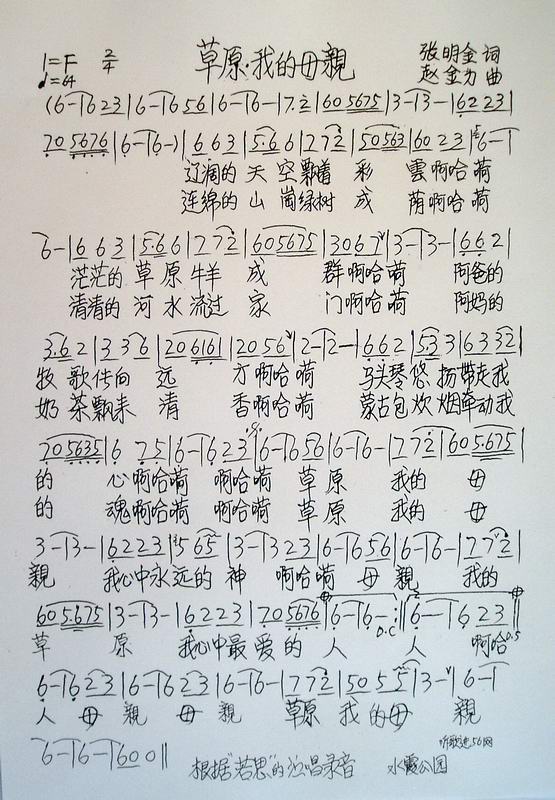 1=F 2/4 草原·我的母親 张明金 词
♩=64 赵金力 曲
(6-|6 23|6-|6 56|6-|6-|7·2|60 5675|3-|3-|62 23|
70 5676|6-|6-)|6 63|5·6 6|7 7 2|50 563|60 23|6-|
辽阔的 天 空飘着 彩 雲啊哈 嗬
连绵的 山 崗绿树 成 荫啊哈 嗬
6-|6 6 3|5·6 6|7 7 2|60 5675|30 67|3-|3-|6 6 2|
茫茫的 草 原 牛羊 成 群啊哈 嗬 阿爸的
清清的 河 水 流过 家 门啊哈 嗬 阿妈的
3·6 2|3 3 6|20 6161|20 56|2-|2-|6 6 2|5 33|6 3 32|
牧 歌传向 远 方 啊哈 嗬 马头琴 悠 扬带走我
奶 茶飘来 清 香啊哈 嗬 蒙古包 炊 烟牵动我
70 5635|6 75|6-|6 23|6-|6 56|6-|6-|7 7 2|60 5675|
的 心啊哈嗬 啊哈嗬 草 原 我的 母
的 魂啊哈嗬 啊哈嗬 草 原 我的 母
3-|3-|62 23|5 65|3-|3 23|6-|6 56|6-|6-|7 7 2|
親 我心中永远的 神 啊哈嗬 母 親 我的
60 5675|3-|3-|62 23|70 5676|6-|6-:‖6-|6 23‖
草 原 我心中最 爱 的 人 D.C 人 啊哈 D.S
6-|6 23|6-|6 23|6-|6-|7 7 2|50 5 5|3-|6-|
人 母 親 母 親 草原 我 的母 親
6-|6-|60 0‖ 听歌途56网
根据"若思"的演唱录音 水霞公园